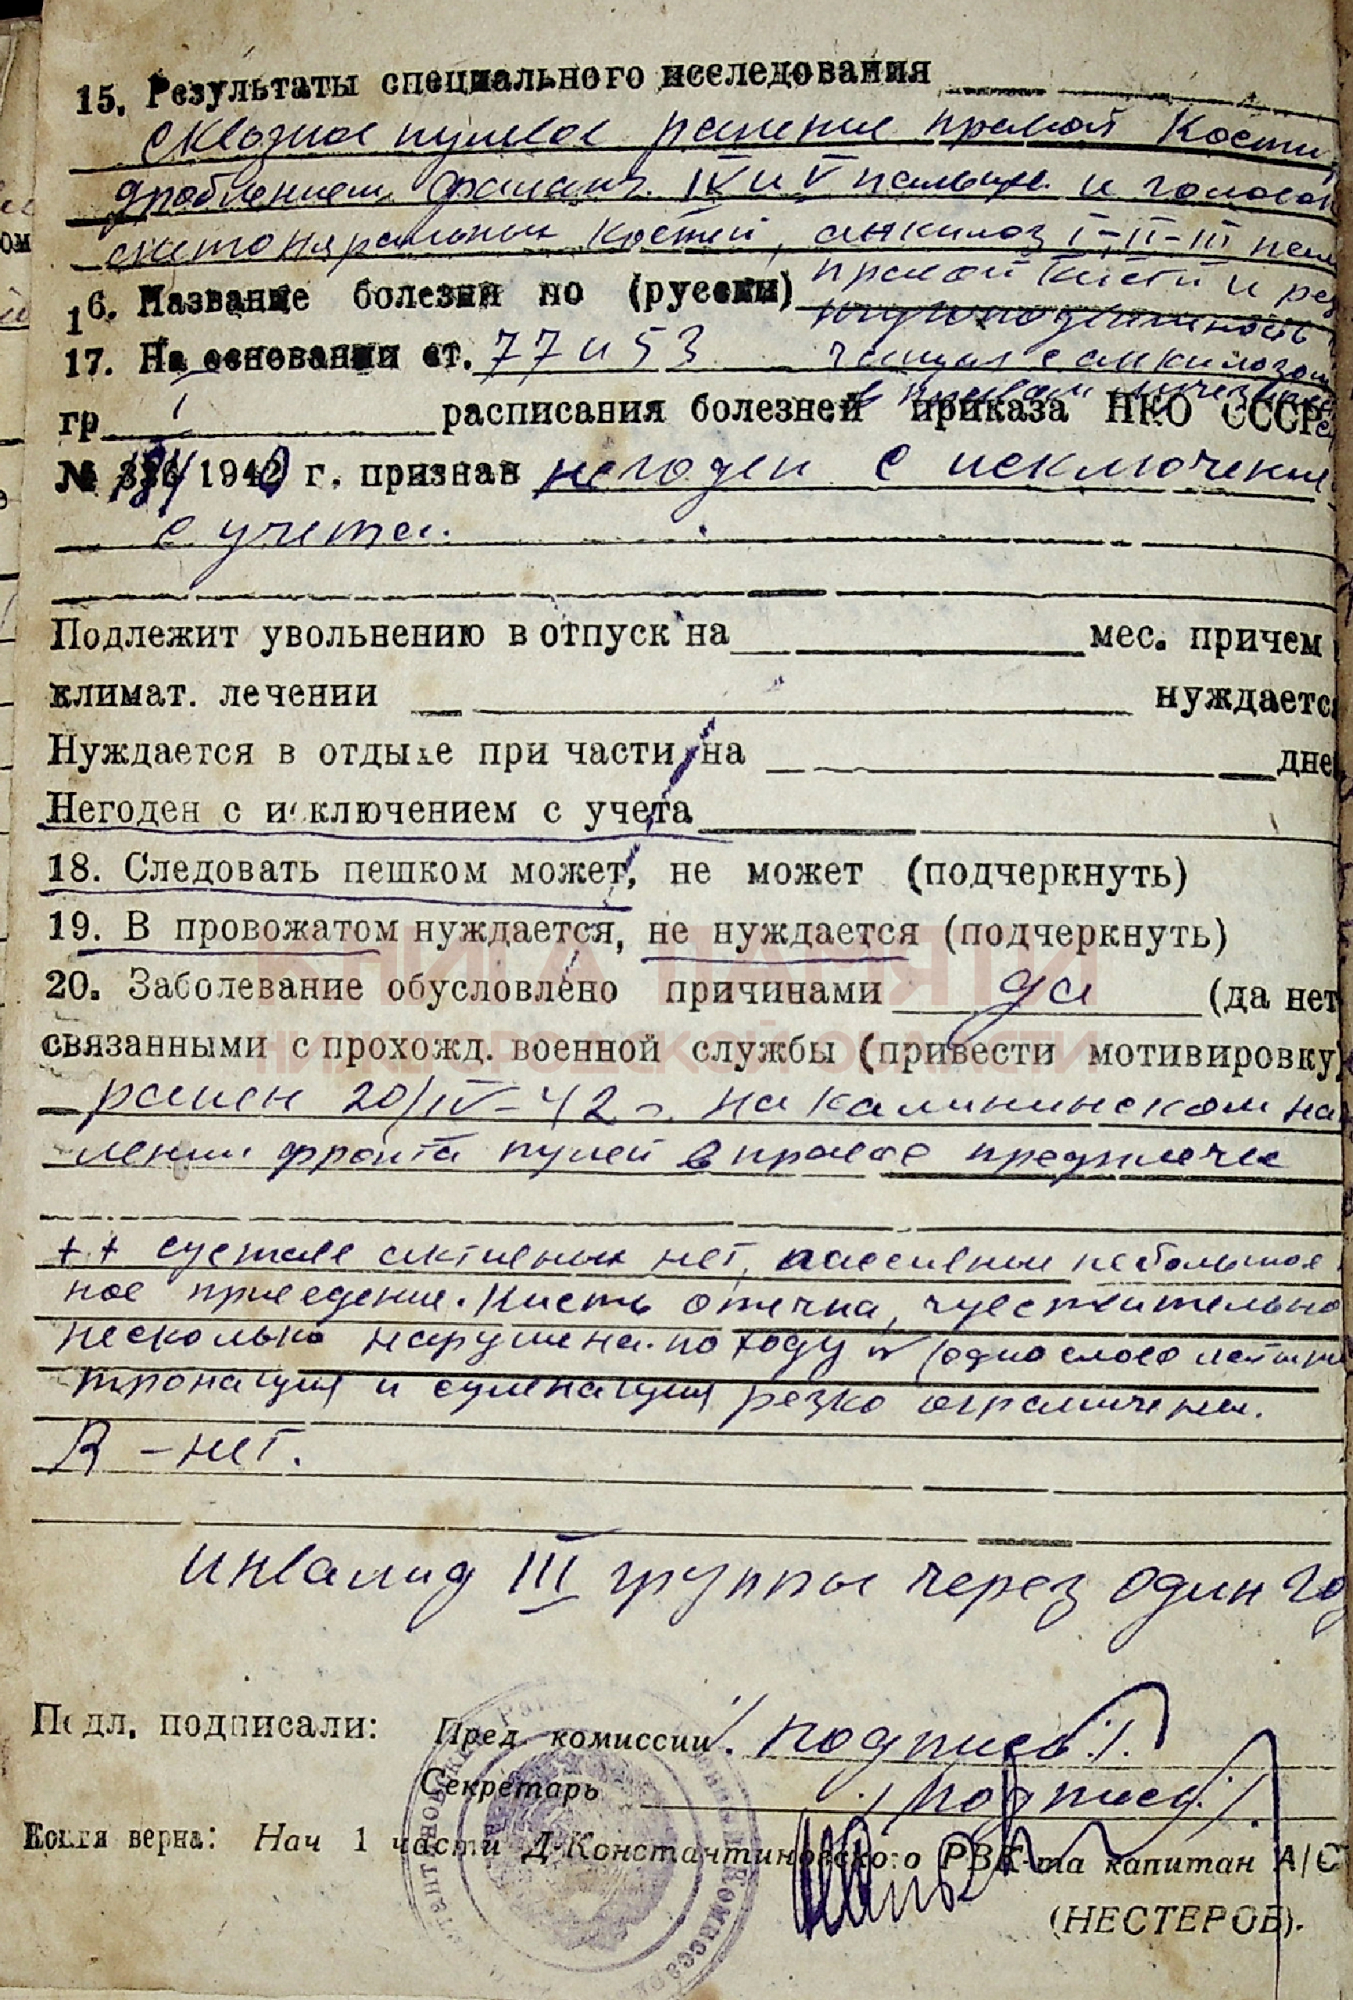 15. Результаты специального исследования
сквозное пулевое ранение правой Кости
дроблением фаланг IV и V пальцев и головок
костей, анкилоз I-II-III
правой кисти и
16. Название болезни по (русски)
неподвижность
17. На основании ст. 77 и 53
с анкилозом
гр I расписания болезней приказа НКО СССР
№ 184 1940 г. признан негоден с исключением
с учета.
Подлежит увольнению в отпуск на мес. причем
климат. лечении нуждается
Нуждается в отдыхе при части на дне
Негоден с исключением с учета
18. Следовать пешком может, не может (подчеркнуть)
19. В провожатом нуждается, не нуждается (подчеркнуть)
КНИГА ПАМЯТИ
20. Заболевание обусловлено причинами да (да нет
НИЖЕГОРОДСКОЙ ОБЛАСТИ
связанными с прохожд. военной службы (привести мотивировку)
ранен 20/IV-42 г. на калининском на
лении фронта пулей в правое предплечье
++ суставе активных нет, пассивные небольшое
ное приведение. Кисть отечна, чувствительно
несколько нарушена по ходу
пронация и супинация резко ограничены.
R - нет.
инвалид III группы через один год
Подл. подписали: Пред. комиссии /подпись/.
Секретарь /подпись/
Копия верна: Нач 1 части Д-Константиновского РВК-та капитан А/С
(НЕСТЕРОВ).